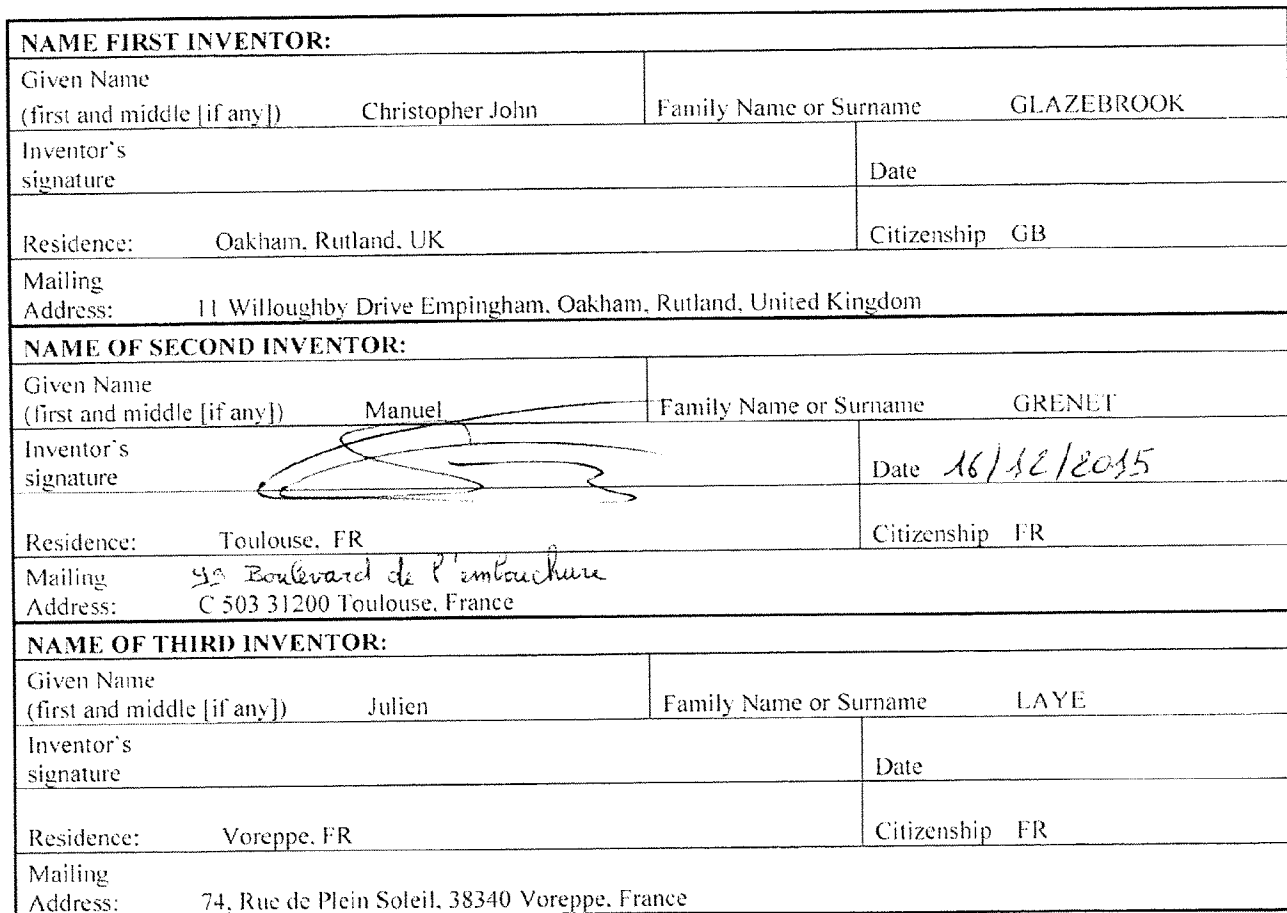 NAME FIRST INVENTOR:
Given Name
(first and middle [if any]) Christopher John Family Name or Surname GLAZEBROOK
Inventor's
signature Date
Residence: Oakham, Rutland, UK Citizenship GB
Mailing
Address: 11 Willoughby Drive Empingham, Oakham, Rutland, United Kingdom
NAME OF SECOND INVENTOR:
Given Name
(first and middle [if any]) Manuel Family Name or Surname GRENET
Inventor's
signature Date 16/12/2015
Residence: Toulouse, FR Citizenship FR
Mailing Boulevard de l'embouchure
Address: C 503 31200 Toulouse, France
NAME OF THIRD INVENTOR:
Given Name
(first and middle [if any]) Julien Family Name or Surname LAYE
Inventor's
signature Date
Residence: Voreppe, FR Citizenship FR
Mailing
Address: 74, Rue de Plein Soleil, 38340 Voreppe, France